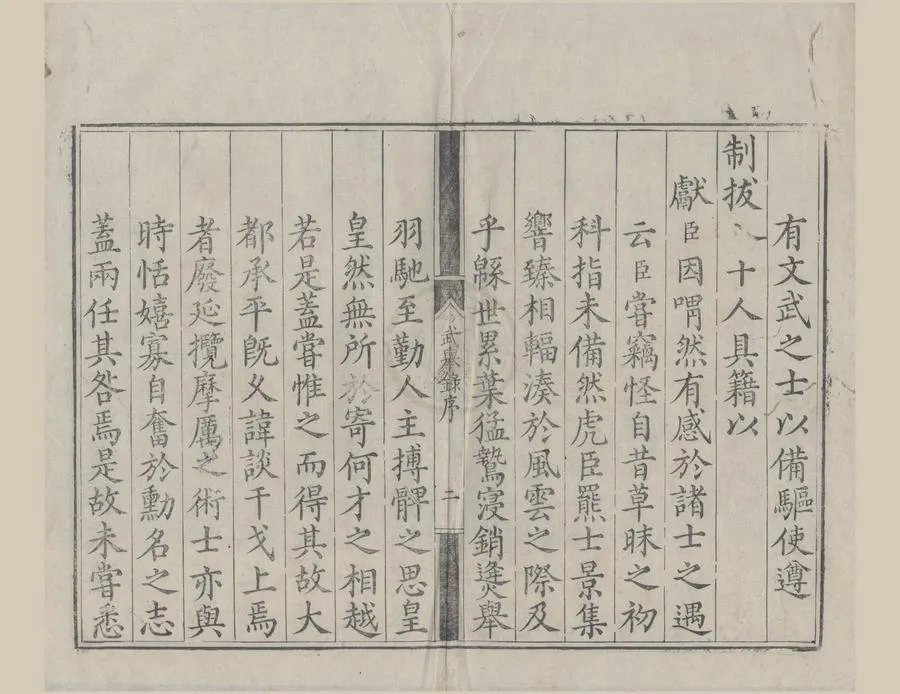 有文武之士以備驅使遵
制拔八十人具籍以
獻臣因喟然有感於諸士之遇
云臣嘗竊怪自昔草昧之初
科指未備然虎臣羆士景集
響臻相輻湊於風雲之際及
乎緜世累葉猛鷙寖銷㷭舉
武舉錄序
二
羽馳至勤人主搏髀之思皇
皇然無所於寄何才之相越
若是蓋嘗惟之而得其故大
都承平旣久諱談干戈上焉
者廢延攬摩厲之術士亦與
時恬嬉寡自奮於勳名之志
蓋兩任其咎焉是故未嘗悉